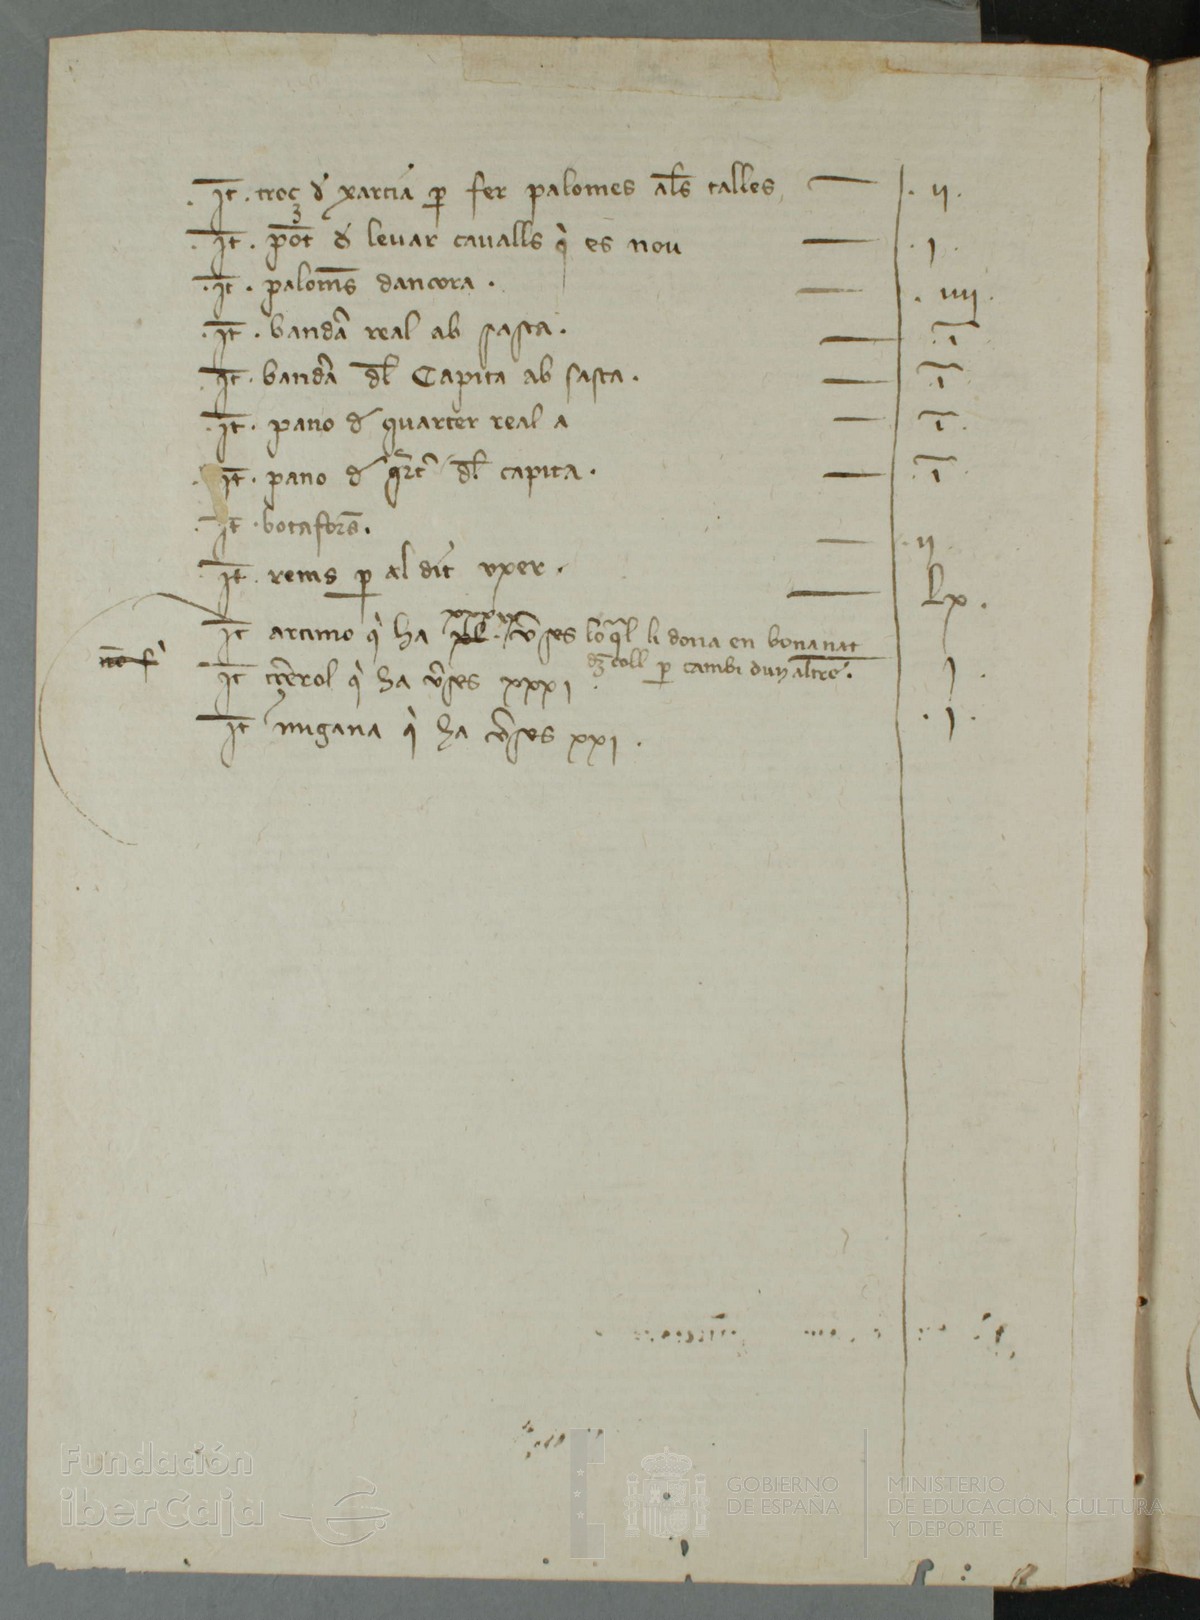 It. troç d xarcia p fer palomes als talles — .ii.
It. pot d levar cavalls q es nou — .i.
It. paloms dancora. — .iiii.
It. banda real ab sasta. — .i.
It. banda dl Capita ab sasta. — .i.
It. pano d quarter real a — .i.
It. pano d qrt dl capita. — .i.
It. botafors. — .ii
It. rems p al dit uxer. — Lx.
It artimo q ha xxxix vses lo ql li dona en bonanat
dz coll p cambi dun altre.
no f
It terol q ha vses xxxi. i
It migana q ha vses xxi. .i.
Fundación
iberCaja
GOBIERNO
DE ESPAÑA
MINISTERIO
DE EDUCACIÓN, CULTURA
Y DEPORTE